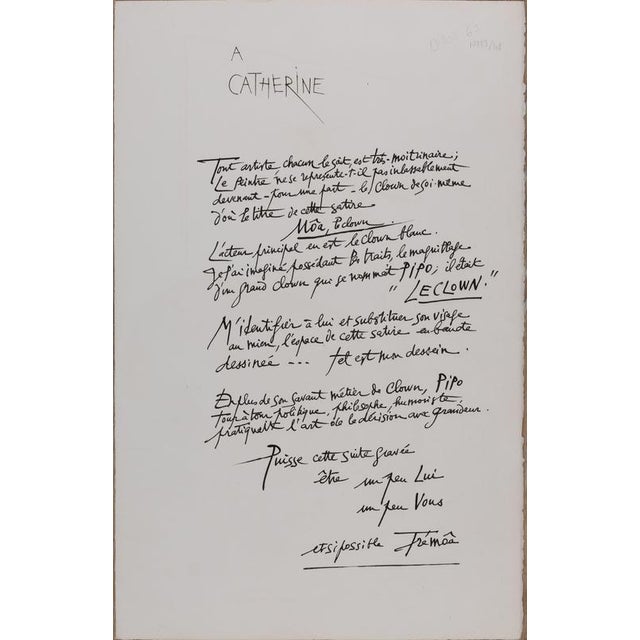 A
CATHERINE
Tout artiste chacun le sait, est très-moitrinaire;
Le Peintre ne se représente-t-il pas inlassablement
devenant - pour une part - le Clown de soi-même
d'où le titre de cette satire
Môa, le clown.
L'acteur principal en est le Clown blanc.
Je l'ai imaginé possédant les traits, le maquillage
d'un grand Clown qui se nommait PIPO; il était
"LE CLOWN."
M'identifier à lui et substituer son visage
au mien, l'espace de cette satire en bande
dessinée --- tel est mon dessein.
En plus de son savant métier de Clown, PIPO
tour à tour politique, philosophe, humoriste,
pratiquait l'art de la dérision avec grandeur.
Puisse cette suite gravée
être un peu Lui
un peu Vous
et si possible Trémôa